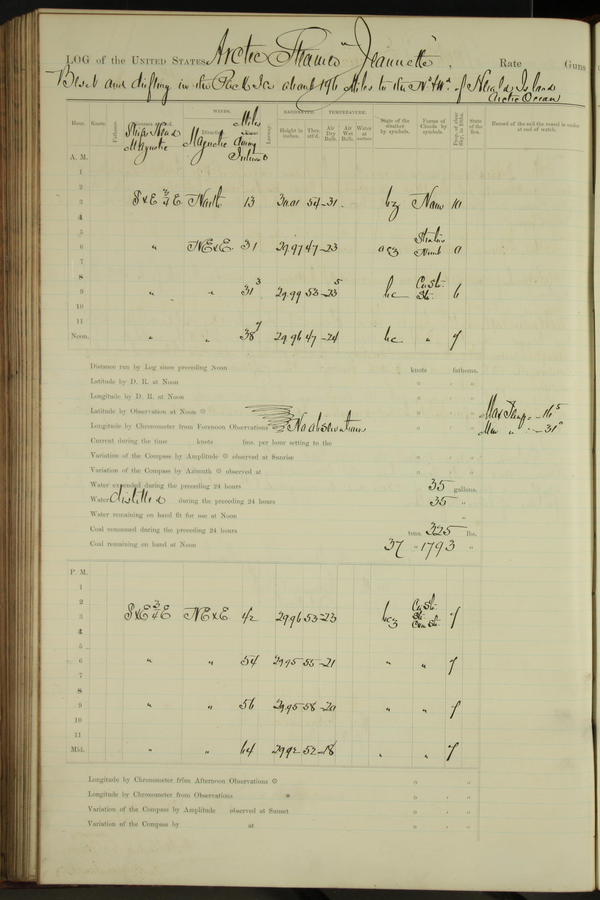 LOG of the UNITED STATES Arctic Steamer "Jeannette", Rate Guns
Beset and drifting in the Pack Ice about 196 Miles to the Nd & Wd of Herald Island
Arctic Ocean
Hour. Knots. Fathoms. Ship's Head Magnetic WINDS. Direction Magnetic Miles during Interval Leeway. BAROMETER. Height in inches. Ther. att'd. TEMPERATURE. Air Dry Bulb. Air Wet Bulb. Water at surface. State of the weather by symbols. Forms of Clouds by symbols. Prop. of clear sky, in 10ths. State of the Sea. Record of the sail the vessel is under at end of watch.
A. M.
1
2
3 S x E 3/4 E North 13 30.01 54 -31 bz None 10
4
5
6 " NE x E 31 29.97 47 -23 0
7
8
9 " " 31 3 29.99 53 -23 5 bc Cu St. St. 6
10
11
Noon. " " 38 7 29.96 47 -24 bc " 7
Distance run by Log since preceding Noon knots fathoms.
Latitude by D. R. at Noon
Longitude by D. R. at Noon
Latitude by Observation at Noon
Longitude by Chronometer from Forenoon Observations No observations
Max Temp. -16 5
Min " -31 0
Current during the time knots fms. per hour setting to the
Variation of the Compass by Amplitude observed at Sunrise
Variation of the Compass by Azimuth observed at
Water expended during the preceding 24 hours 35 gallons.
Water distilled during the preceding 24 hours 35 "
Water remaining on hand fit for use at Noon "
Coal consumed during the preceding 24 hours tons. 325 lbs.
Coal remaining on hand at Noon 37 " 1793 "
P. M.
1
2
3 S x E 3/4 E NE x E 42 29.96 53 -23 bcz Cu St. St. Cir St. 7
4
5
6 " " 54 29.95 55 -21 " " 7
7
8
9 " " 56 29.95 58 -20 " " 7
10
11
Mid. " " 64 29.92 52 -18 " " 7
Longitude by Chronometer from Afternoon Observations
Longitude by Chronometer from Observations
Variation of the Compass by Amplitude observed at Sunset
Variation of the Compass by at